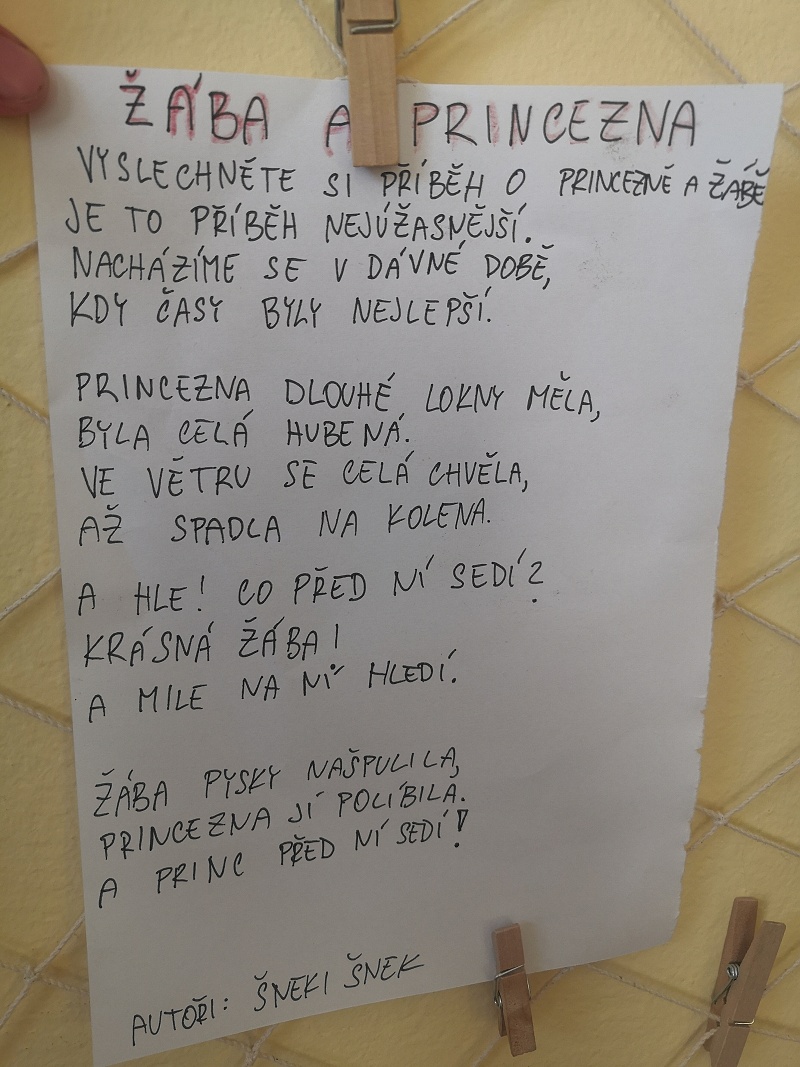 ŽÁBA A PRINCEZNA
VYSLECHNĚTE SI PŘÍBĚH O PRINCEZNĚ A ŽÁBĚ
JE TO PŘÍBĚH NEJÚŽASNĚJŠÍ.
NACHÁZÍME SE V DÁVNÉ DOBĚ,
KDY ČASY BYLY NEJLEPŠÍ.
PRINCEZNA DLOUHÉ LOKNY MĚLA,
BYLA CELÁ HUBENÁ.
VE VĚTRU SE CELÁ CHVĚLA,
AŽ SPADLA NA KOLENA.
A HLE! CO PŘED NÍ SEDÍ?
KRÁSNÁ ŽÁBA!
A MILE NA NÍ HLEDÍ.
ŽÁBA PYSKY NAŠPULILA,
PRINCEZNA JÍ POLÍBILA.
A PRINC PŘED NÍ SEDÍ!
AUTOŘI: ŠNEKI ŠNEK